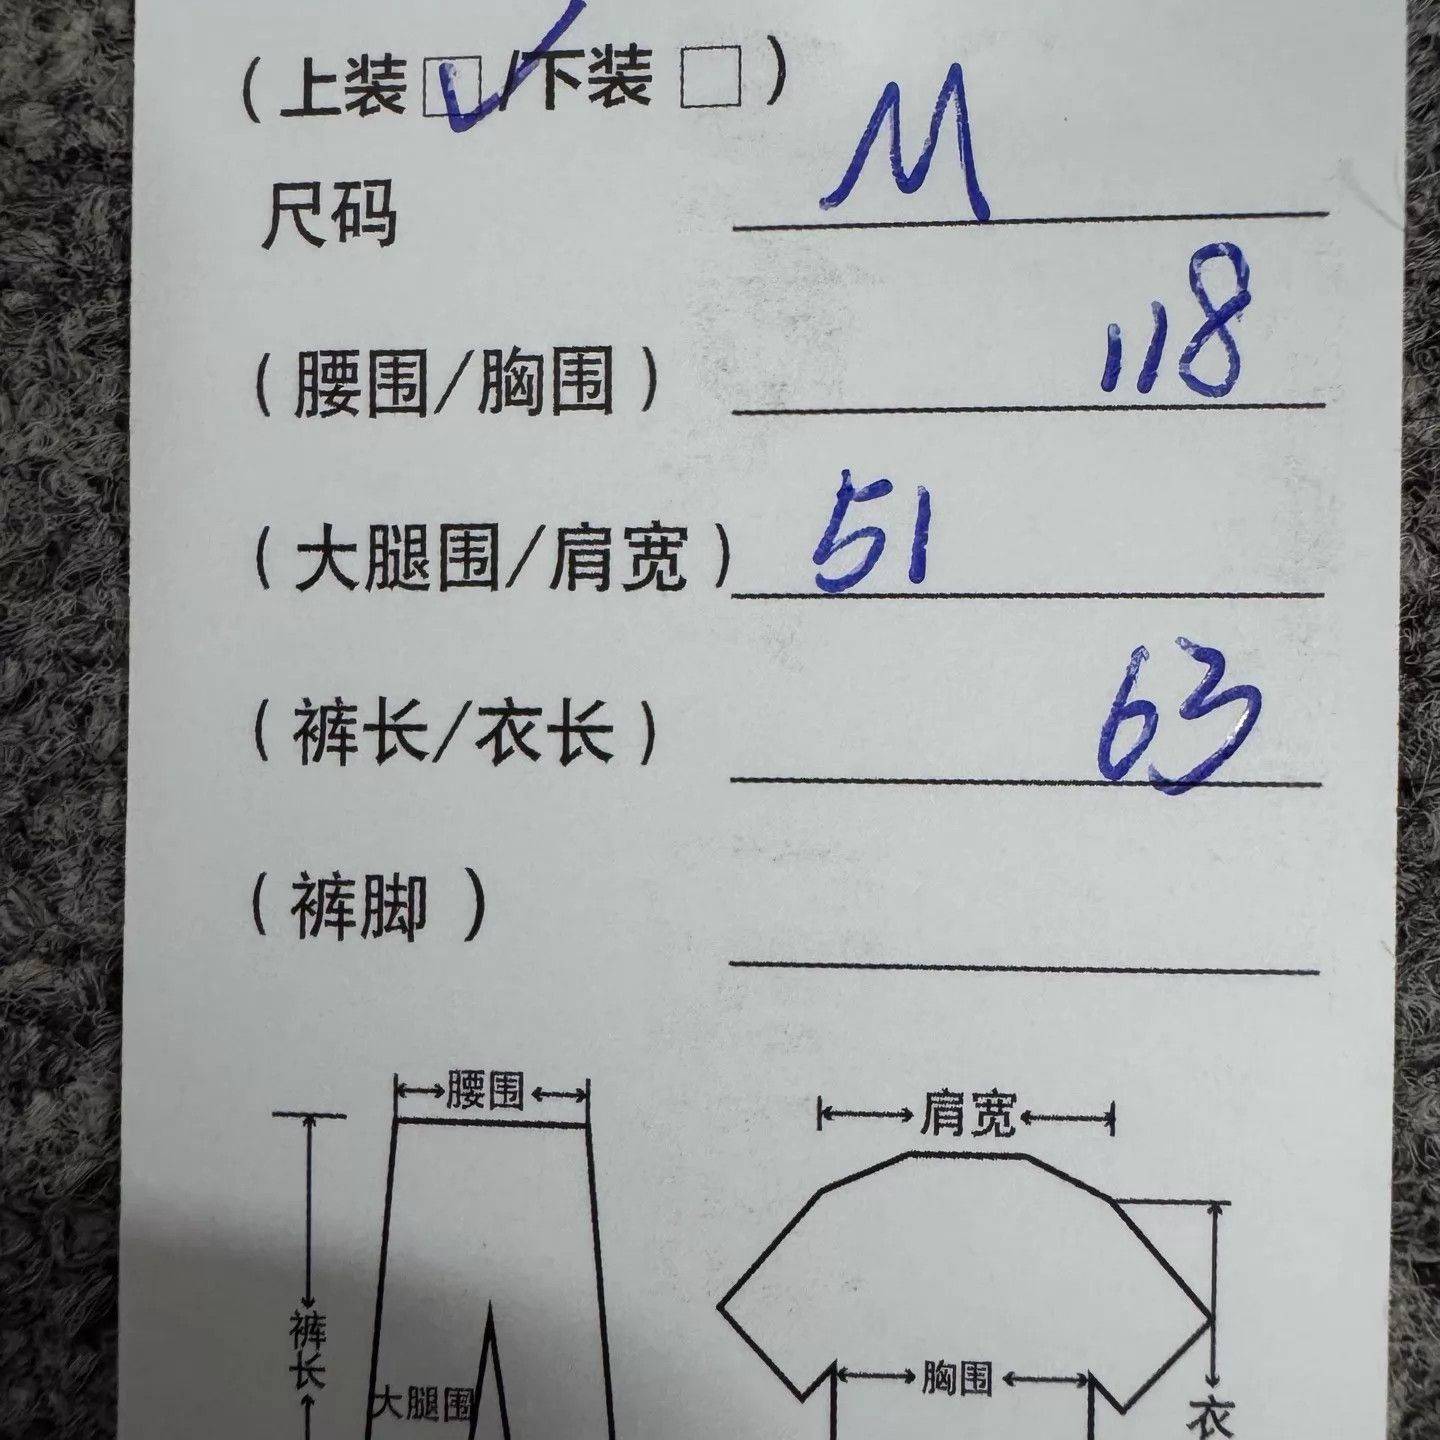 （上装☑/下装□）
尺码 M
（腰围/胸围） 118
（大腿围/肩宽） 51
（裤长/衣长） 63
（裤脚 ）
腰围
肩宽
裤长
胸围
大腿围
衣